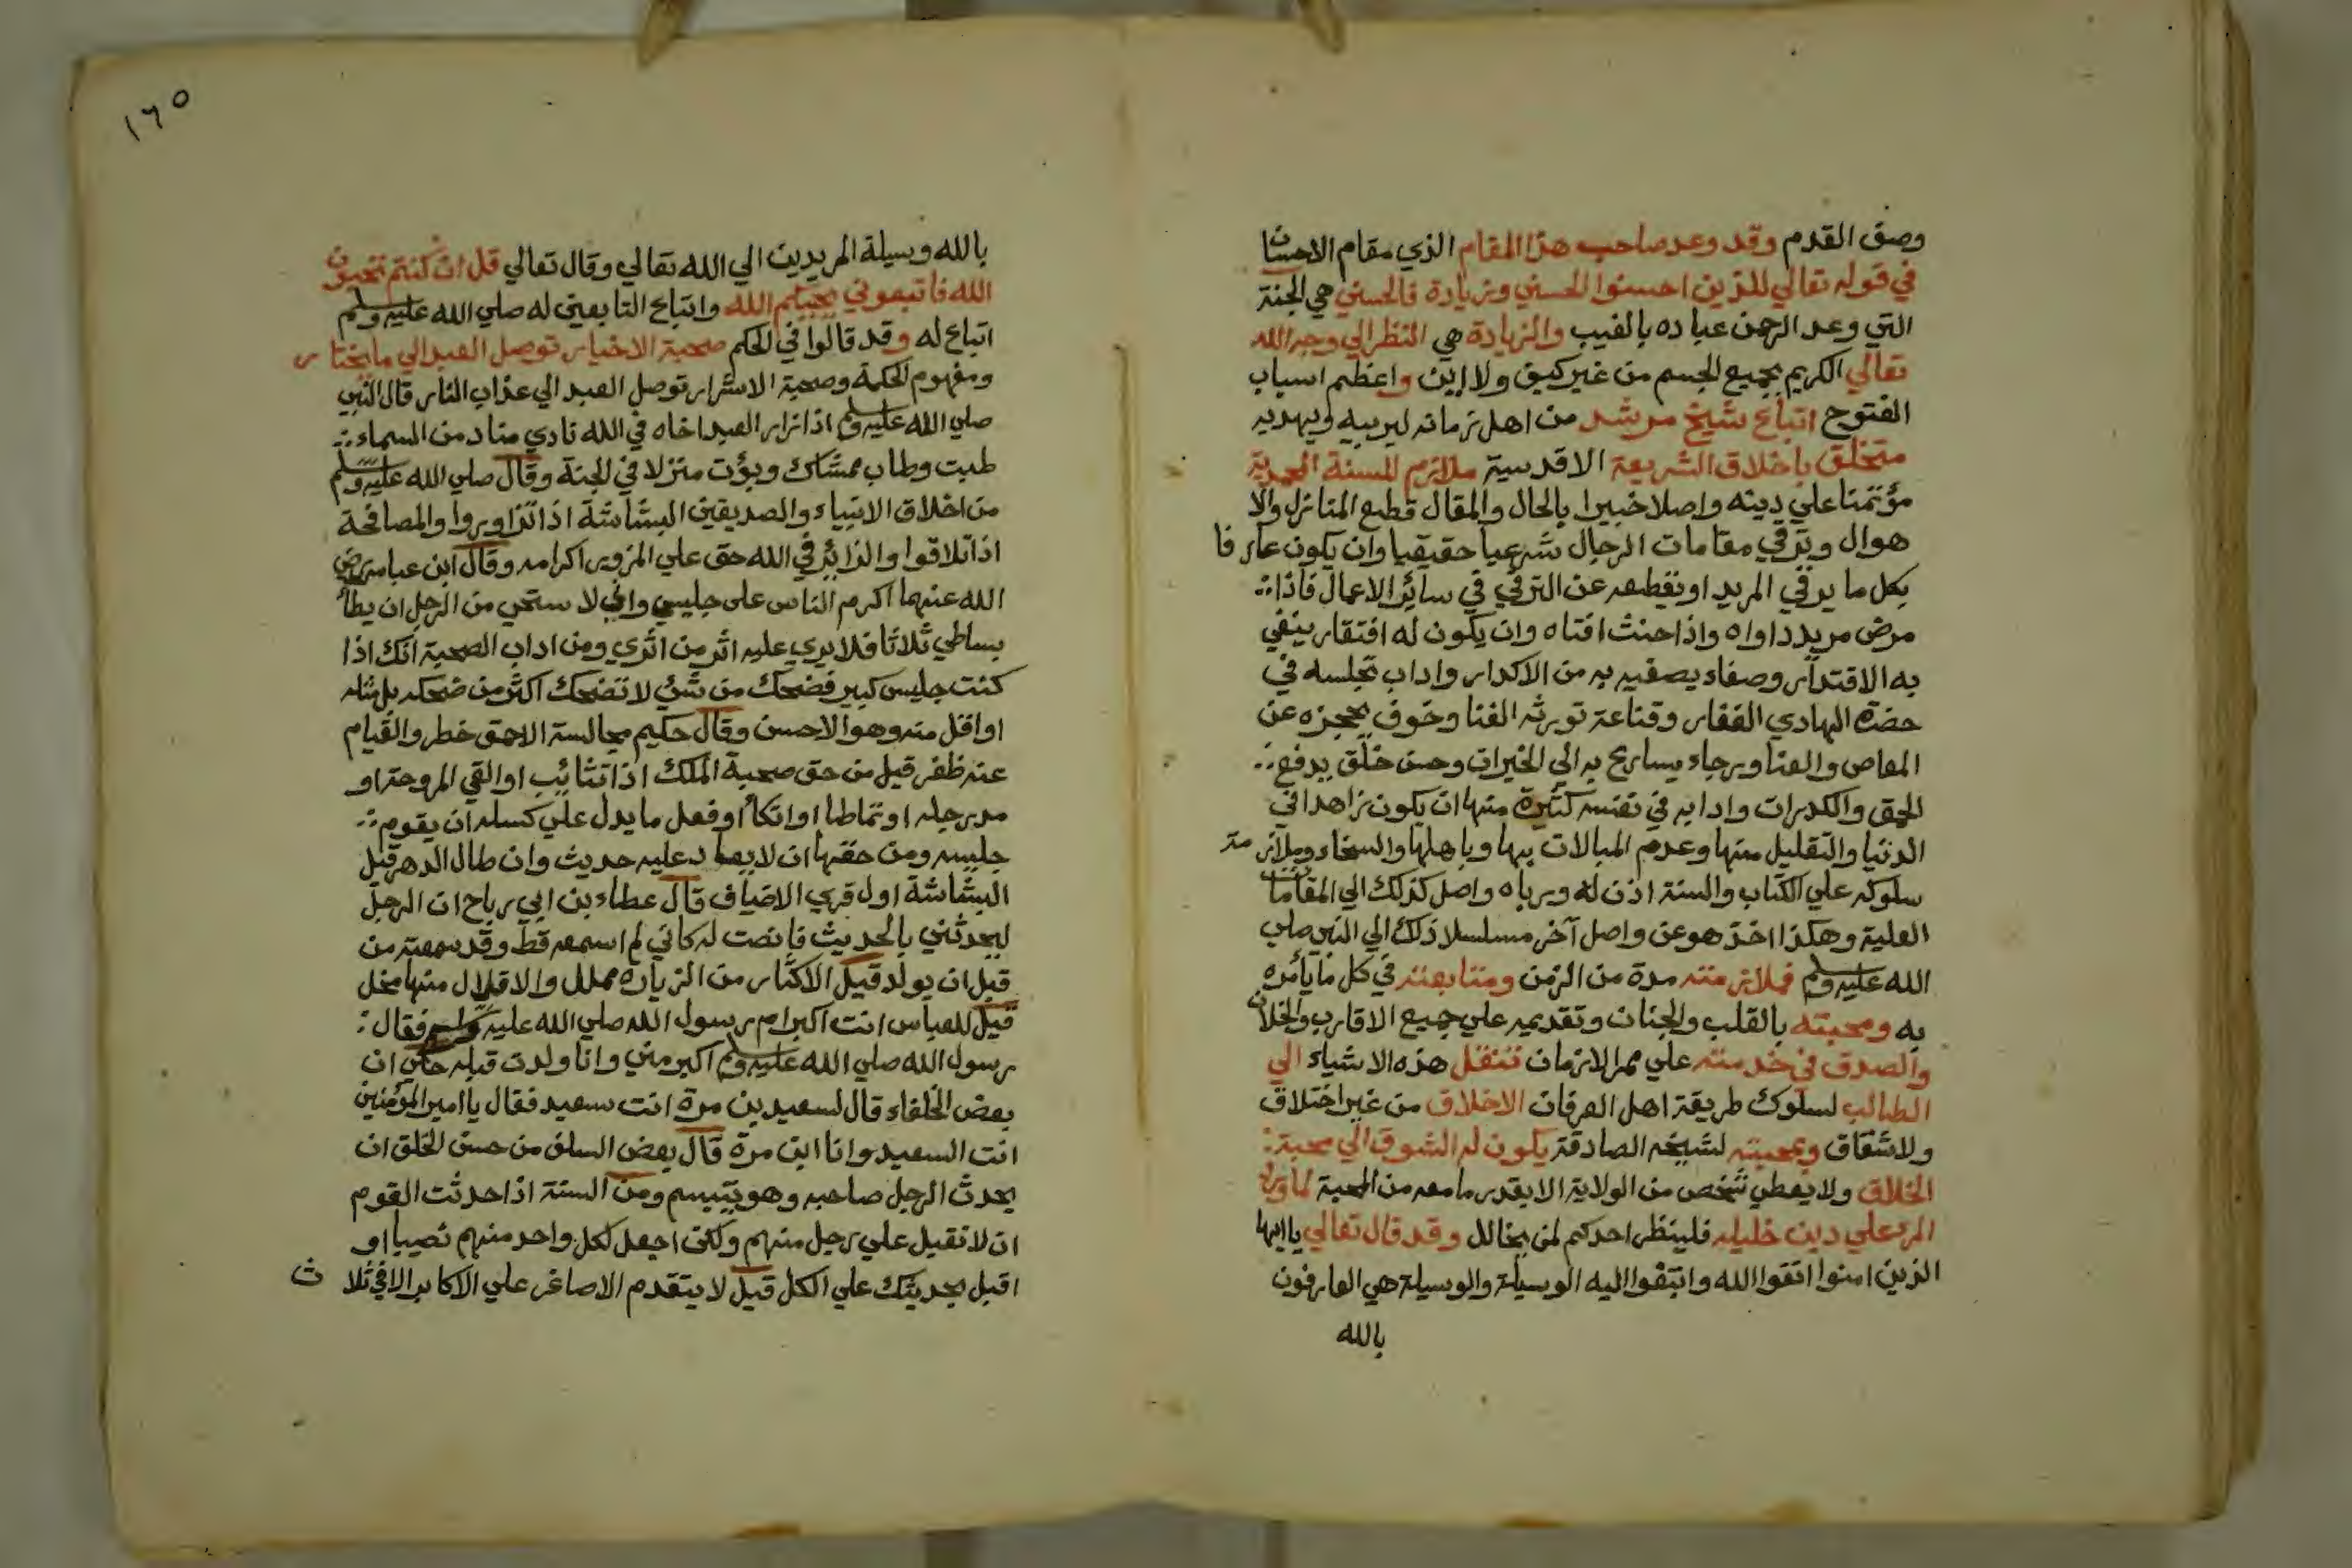 وصف القدم وقد وعد صاحب هذا المقام الذي مقام الاحسان
في قوله تعالي للذين احسنوا الحسني وزيادة فالحسني هي الجنة
التي وعد الرحمن عباده بالغيب والزيادة هي النظر الي وجه الله
تعالي الكريم بجميع الجسم من غير كيف ولا اين واعظم اسباب
الفتوح اتباع شيخ مرشد من اهل زمانه ليربيه ويهديه
متخلق باخلاق الشريعة الاقدسية ملازم للسنة المحمدية
مؤتمنا علي دينه واصلا خبيرا بالحال والمقال قطع المنازل والا
هوال وترقي مقامات الرجال شرعيا حقيقيا وان يكون عارفا
بكل ما يرقي المريد او يقطعه عن الترقي في سائر الاعمال فاذا
مرض مريد داواه واذا حنث افتاه وان يكون له افتقار ينفي
به الاقتدار وصفاء يصفيه به من الاكدار واداب تجلسه في
حضرة الهادي الغفار وقناعة تورثه الغنا وخوف يحجزه عن
المعاص والعنا ورجاء يسارع به الي الخيرات وحسن خلق يدفع
الحمق والكدرات وادابه في نفسه كثيرة منها ان يكون زاهدا في
الدنيا والتقليل منها وعدم المبالات بها وباهلها والسخاء وملازمة
سلوكه علي الكتاب والسنة اذن له ورباه واصل كذلك الي المقامات
العلية وهكذا اخذ هو عن واصل آخر مسلسلا ذلك الي النبي صلي
الله عليه وسلم فملازمته مدة من الزمن ومتابعته في كل ما يأمره
به ومحبته بالقلب والجنان وتقديمه علي جميع الاقارب والخلان
والصدق في خدمته علي ممر الازمان تنقل هذه الاشياء الي
الطالب لسلوك طريقة اهل العرفان الاخلاق من غير اختلاق
ولا شقاق وبمحبته لشيخه الصادقة يكون له الشوق الي محبة
الخلاق ولا يعطي شخص من الولاية الا بقدر ما معه من المحبة لما ورد
المرء علي دين خليله فلينظر احدكم لمن يخالل وقد قال تعالي يا ايها
الذين امنوا اتقوا الله وابتغوا اليه الوسيلة والوسيلة هي العارفون
بالله
١٦٥
بالله وسيلة المريدين الي الله تعالي وقال تعالي قل ان كنتم تحبون
الله فاتبعوني يحببكم الله واتباع التابعين له صلي الله عليه وسلم
اتباع له وقد قالوا في الحكم صحبة الاخيار توصل العبد الي ما يختار
ومفهوم الحكمة وصحبة الاشرار توصل العبد الي عذاب النار قال النبي
صلي الله عليه وسلم اذا زار العبد اخاه في الله نادي مناد من السماء
طبت وطاب ممشاك وبؤت منزلا في الجنة وقال صلي الله عليه وسلم
من اخلاق الانبياء والصديقين البشاشة اذا تزاوروا والمصافحة
اذا تلاقوا والزائر في الله حق علي المزور اكرامه وقال ابن عباس رضي
الله عنهما اكرم الناس على جليسي واني لاستحي من الرجل ان يطأ
بساطي ثلاثا فلا يري عليه اثر من اثري ومن اداب الصحبة انك اذا
كنت جليس كبير فضحك من شئ لا تضحك اكثر من ضحكه بل مثله
او اقل منه وهو الاحسن وقال حكيم مجالسة الاحمق خطر والقيام
عنه ظفر قيل من حق صحبة الملك اذا تثائب او القي المروحة او
مد رجله او تماطا او اتكأ او فعل ما يدل علي كسله ان يقوم
جليسه ومن حقها ان لا يعاد عليه حديث وان طال الدهر قيل
البشاشة اول قري الاضياف قال عطاء بن ابي رباح ان الرجل
ليحدثني بالحديث فانصت له كاني لم اسمعه قط وقد سمعته من
قبل ان يولد قيل الاكثار من الزيارة مملل والاقلال منها مخل
قيل للعباس انت اكبر ام رسول الله صلي الله عليه وسلم فقال
رسول الله صلي الله عليه وسلم اكبر مني وانا ولدت قبله حكي ان
بعض الخلفاء قال لسعيد بن مرة انت سعيد فقال يا امير المؤمنين
انت السعيد وانا ابن مرة قال بعض السلف من حسن الخلق ان
يحدث الرجل صاحبه وهو يتبسم ومن السنة اذا حدثت القوم
ان لا تقبل علي رجل منهم ولكن اجعل لكل واحد منهم نصيبا او
اقبل بحديثك علي الكل قيل لا يتقدم الاصاغر علي الاكابر الا في ثلاث